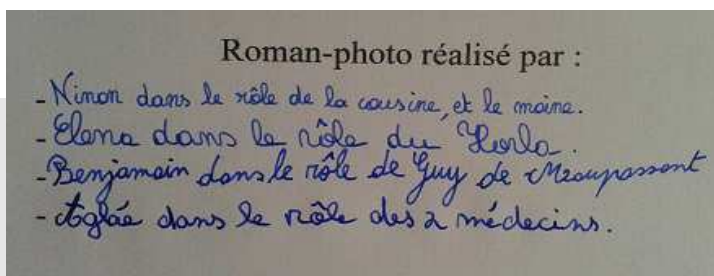 Roman-photo réalisé par :
- Ninon dans le rôle de la cousine, et le moine.
- Elena dans le rôle du Horla.
- Benjamain dans le rôle de Guy de Maupassant
- Aglaé dans le rôle des 2 médecins.